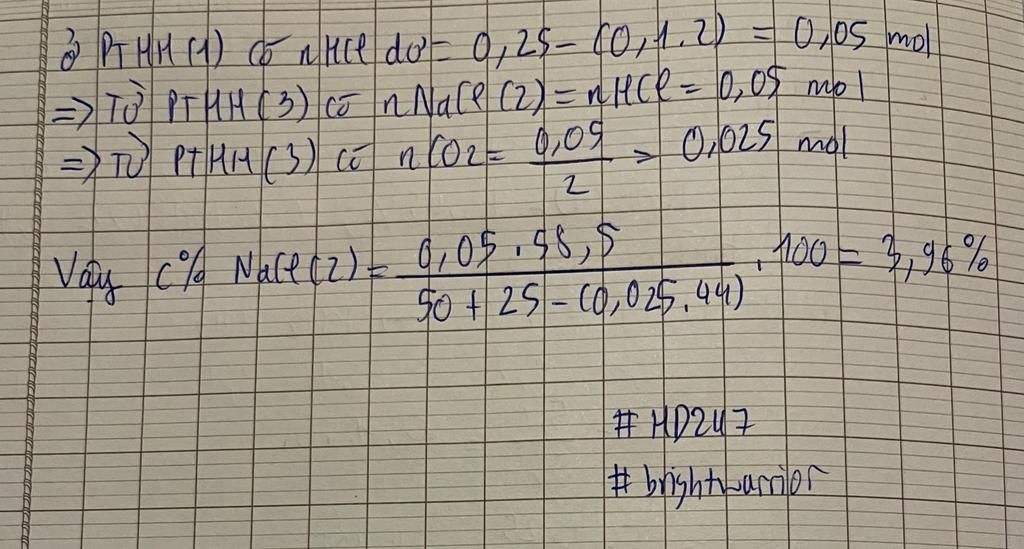 ở PTHH(1) có nHCl dư = 0,25 - (0,1.2) = 0,05 mol
=> Từ PTHH(3) có nNaCl(2) = nHCl = 0,05 mol
=> Từ PTHH(3) có nCO2 = 0,05/2 = 0,025 mol
Vậy C% NaCl(2) = 0,05.58,5/50 + 25 - (0,025.44) . 100 = 3,96%
# HD247
# brightwarrior